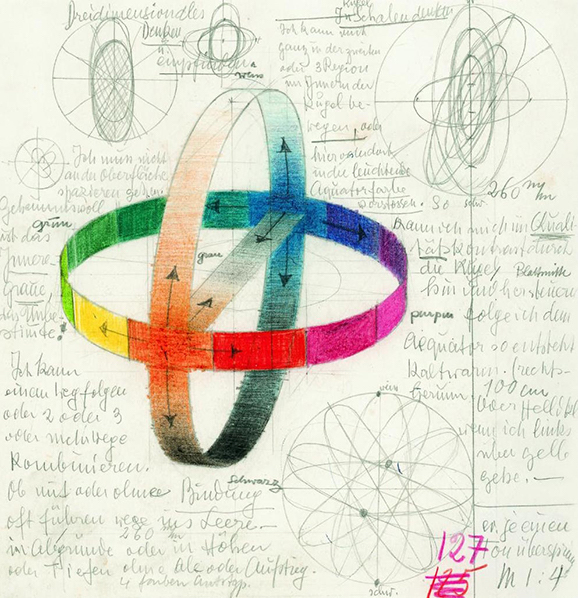 Dreidimensionales
Denken
u.
empfinden.
weiss
In Schalen denken
Ich kann mich
ganz in der zweiten
oder 3 Region
im Innern der
Kugel be-
wegen, oder
hier oder dort
in die leuchtende
Aquatorfarbe
vorstossen. So
260 mm
schw.
kann ich mich im Quali-
tätskontrast durch
die Kugel
hin und her steuern
folge ich dem
Aequator so entsteht
Kaltwarm. (rechts-
herum.
100 cm
Oder Helldkl
wenn ich links
über gelb
gehe. —
Ich muss nicht
an der Oberfläche
spazieren gehn.
Geheimnisvoll
grün
ist das
Innere
Graue,
das Unbe-
stimmte!
grau
purpur
Ich kann
einem Weg folgen
oder 2 oder 3
oder mehr Wege
Kombinieren.
Ob mit oder ohne Bindung
oft führen Wege ins Leere. —
260 m
in Abgründe oder in Höhen
oder Tiefen ohne Ab oder Aufstieg.
4 farben
schwarz
schw.
127
125
M 1:4